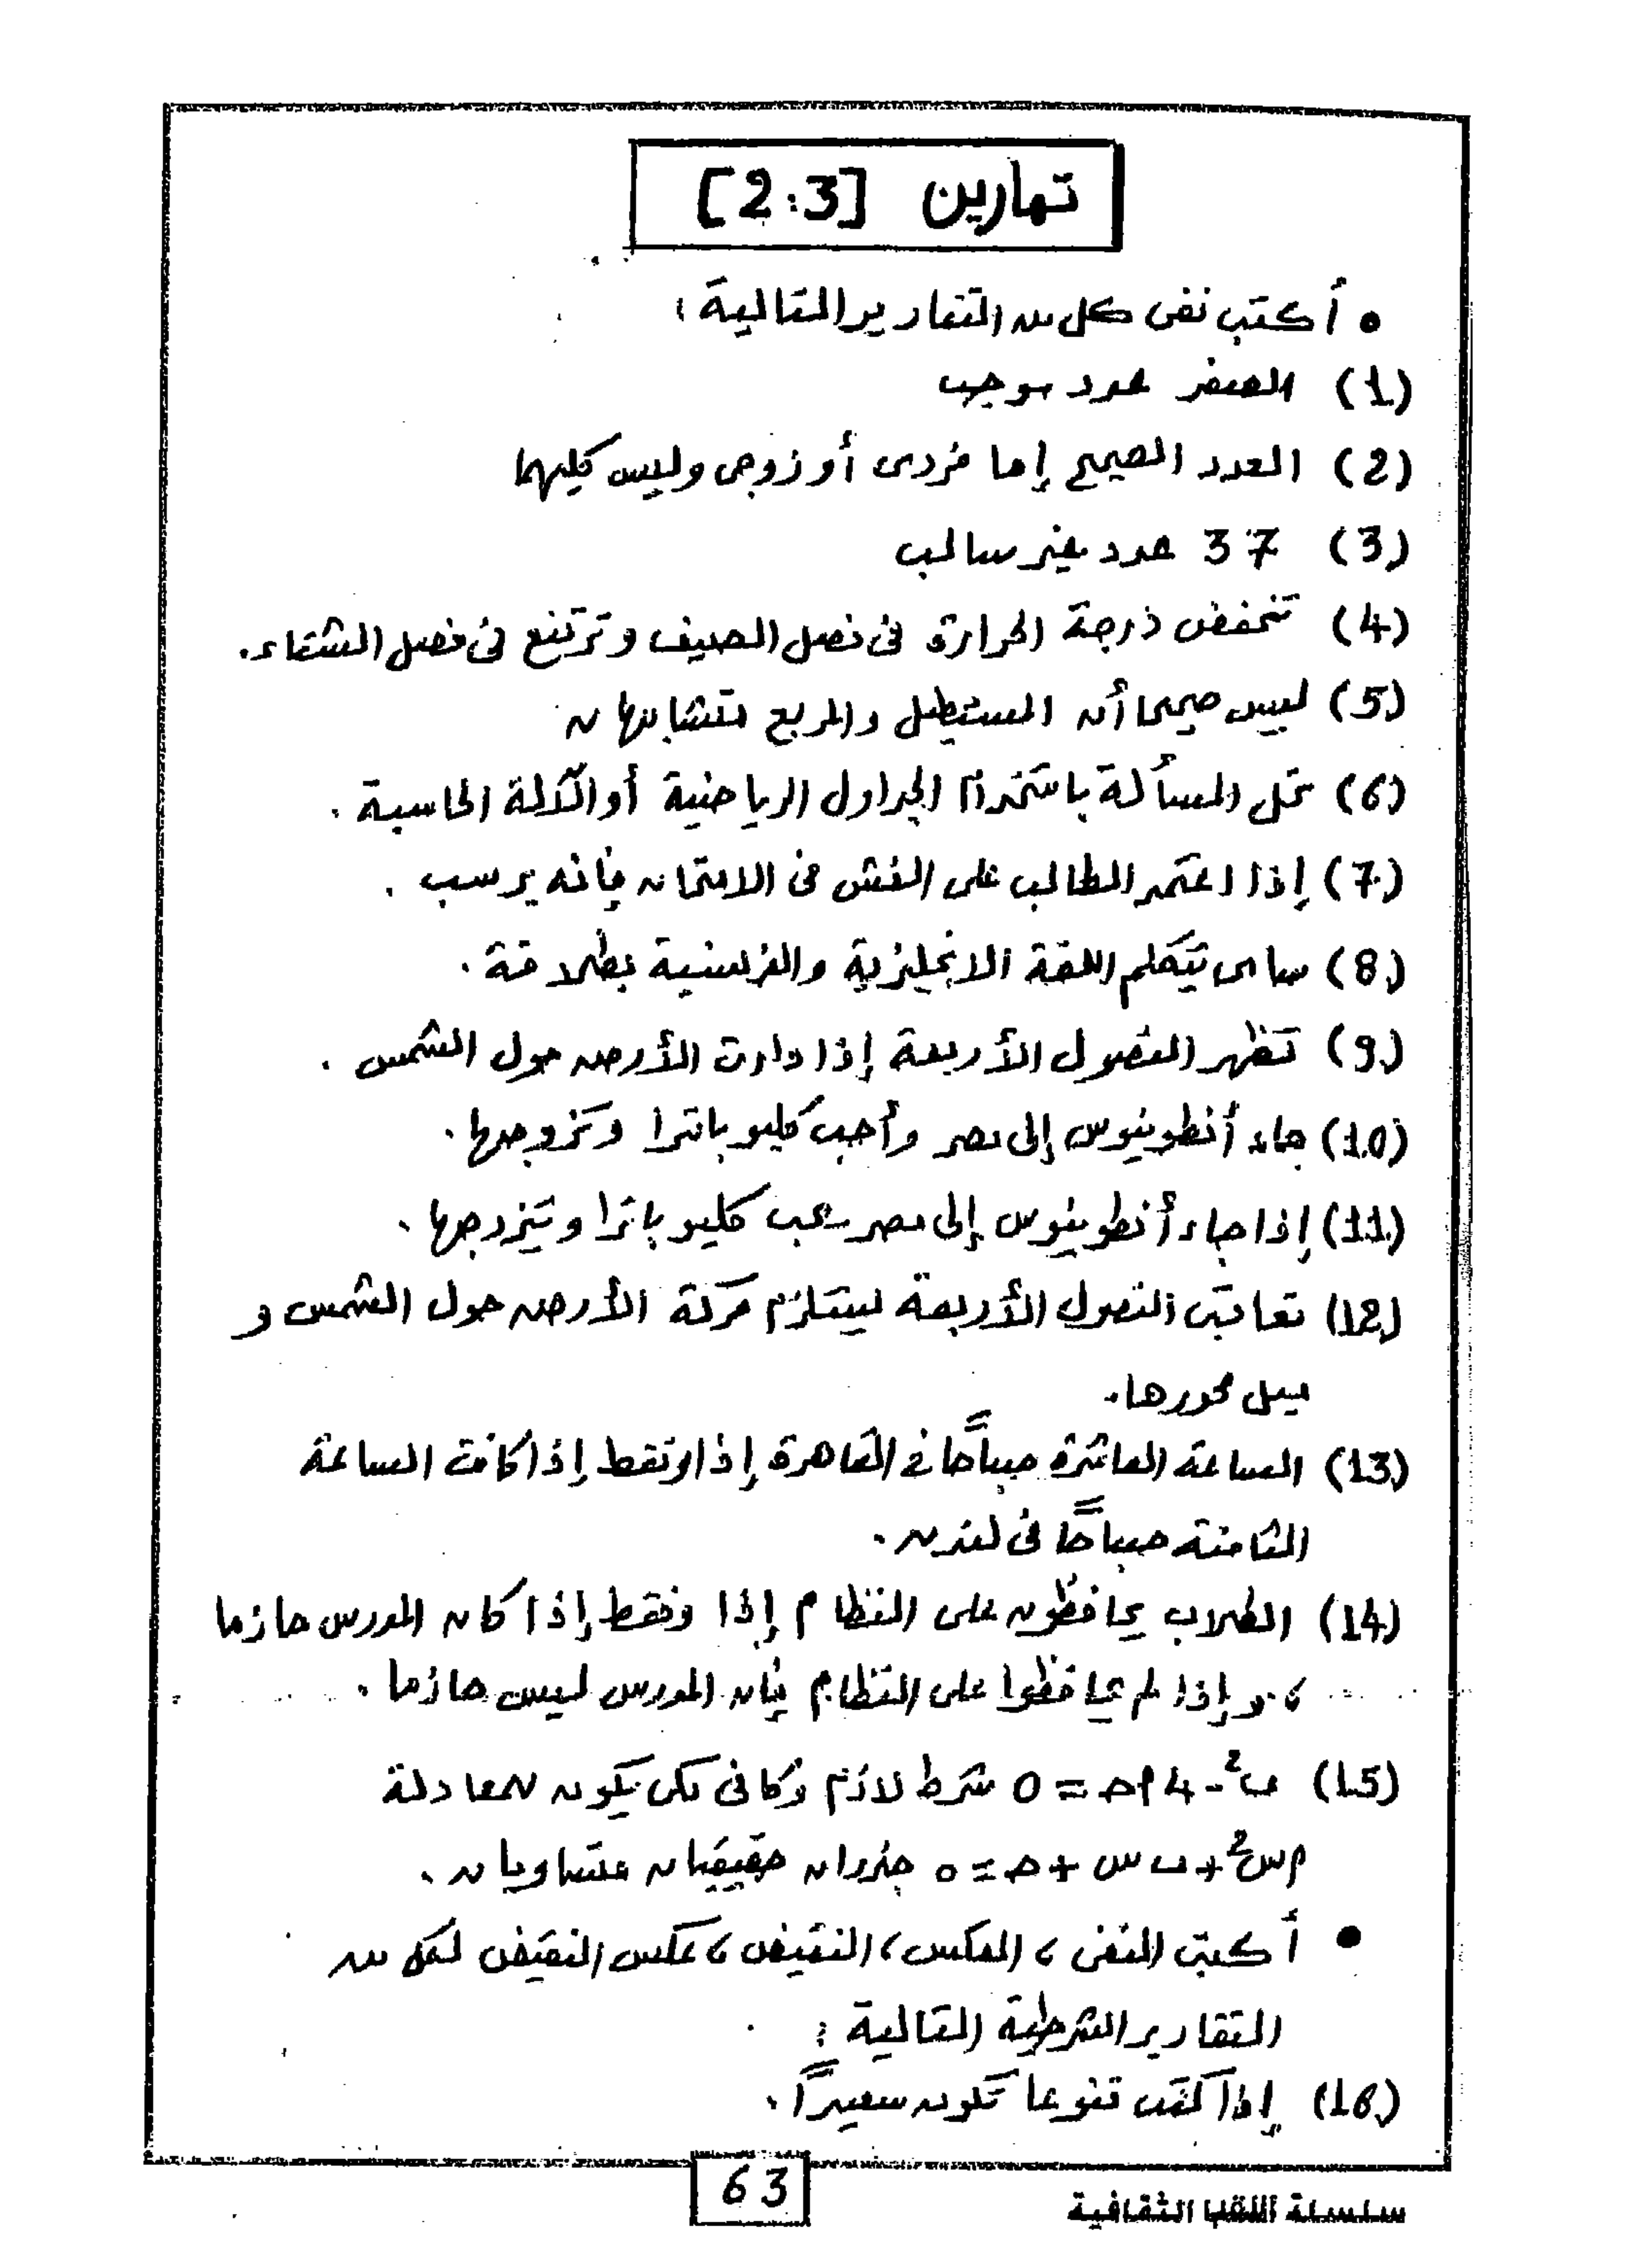 تمارين [2:3]
• أكتب نفى كل من التقارير التالية:
(1) الصفر عدد موجب
(2) العدد الصحيح إما فردى أو زوجى وليس كليهما
(3) 37 عدد غير سالب
(4) تنخفض درجة الحرارة فى فصل الصيف وترتفع فى فصل الشتاء.
(5) ليس صحيحا أن المستطيل والمربع متشابهان
(6) تحل المسألة باستخدام الجداول الرياضية أو الآلة الحاسبة.
(7) إذا اعتمد الطالب على الغش فى الامتحان فإنه يرسب.
(8) سامى يتكلم اللغة الانجليزية والفرنسية بطلاقة.
(9) تظهر الفصول الأربعة إذا دارت الأرض حول الشمس.
(10) جاء أنطونيوس إلى مصر وأحب كليوباترا وتزوجها.
(11) إذا جاء أنطونيوس إلى مصر سيحب كليوباترا ويتزوجها.
(12) تعاقب الفصول الأربعة يستلزم حركة الأرض حول الشمس و
ميل محورها.
(13) الساعة العاشرة صباحًا فى القاهرة إذا وفقط إذا كانت الساعة
الثامنة صباحًا فى لندن.
(14) الطلاب يحافظون على النظام إذا وفقط إذا كان المدرس حازما
، وإذا لم يحافظوا على النظام فإن المدرس ليس حازما.
(15) ب² - 4أحـ = 0 شرط لازم وكافى لكى يكون للمعادلة
أس² + ب س + حـ = 0 جذران حقيقيان متساويان.
• أكتب النفى، العكس، النقيض، عكس النقيض لكل من
التقارير الشرطية التالية:
(16) إذا كنت قنوعا تكون سعيدًا.
63
سلسلة اللقب الثقافية